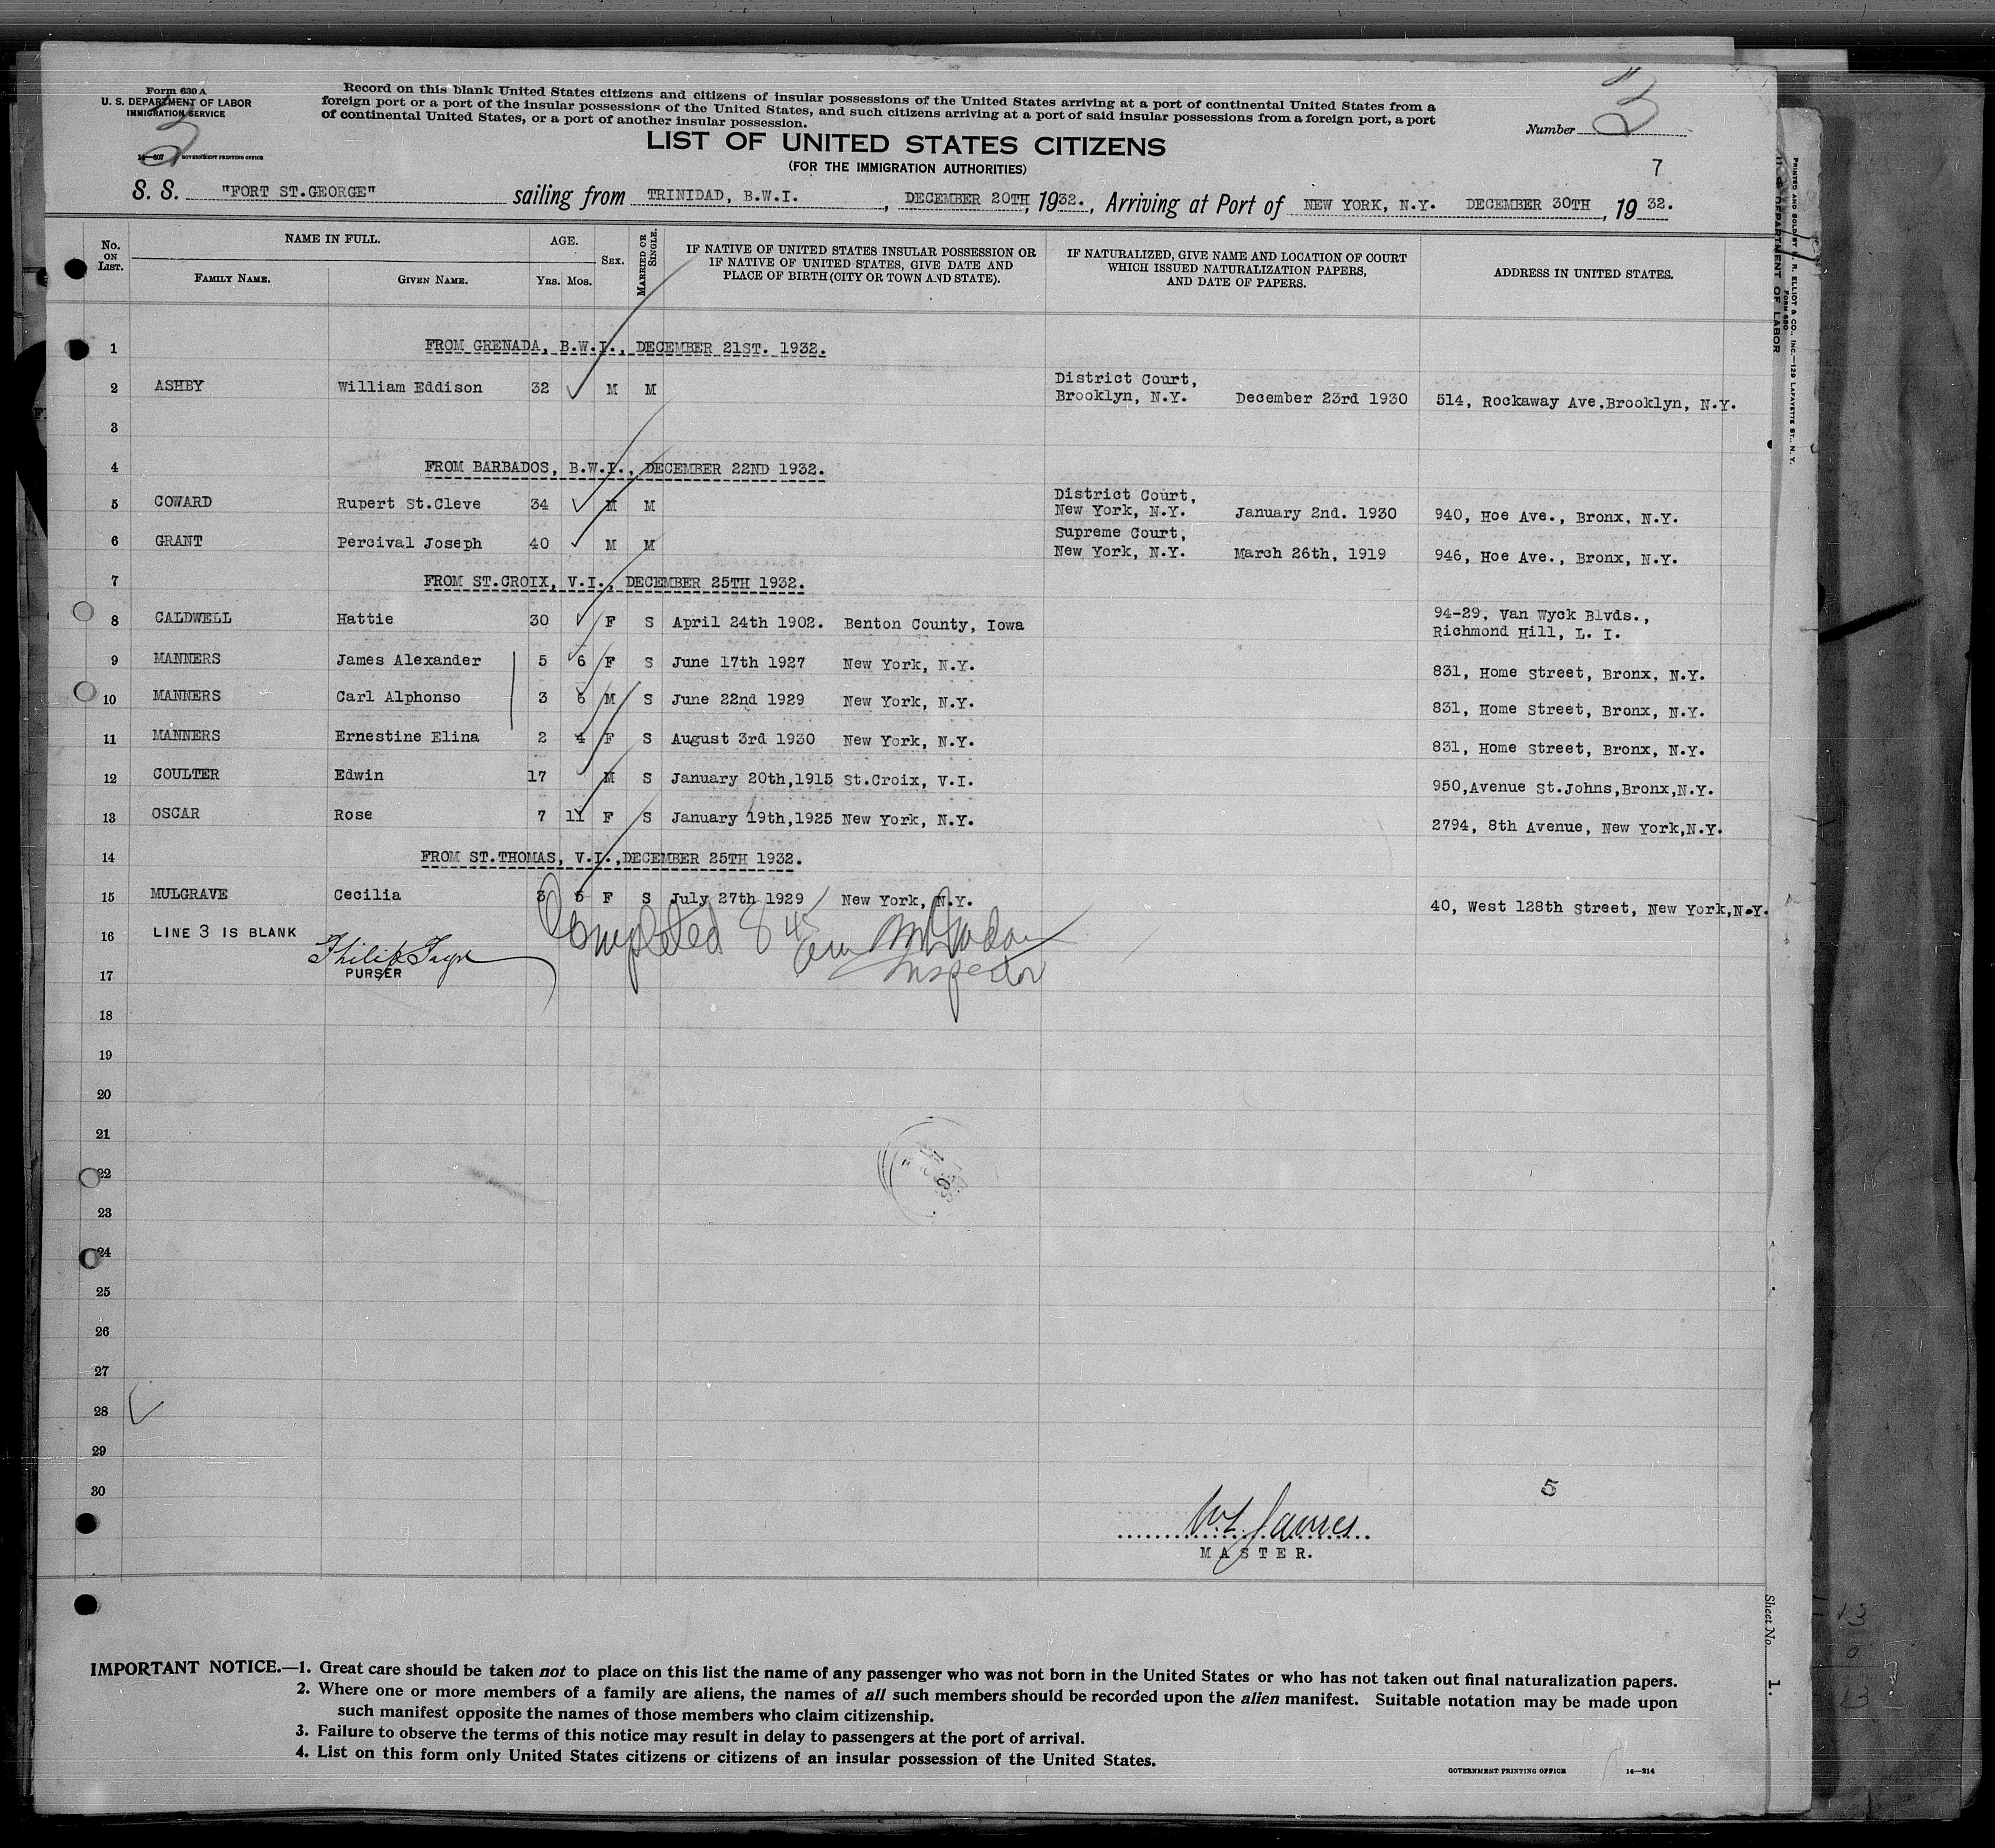 Form 630 A
U. S. DEPARTMENT OF LABOR
IMMIGRATION SERVICE
3
14—607 GOVERNMENT PRINTING OFFICE
Record on this blank United States citizens and citizens of insular possessions of the United States arriving at a port of continental United States from a
foreign port or a port of the insular possessions of the United States, and such citizens arriving at a port of said insular possessions from a foreign port, a port
of continental United States, or a port of another insular possession.
Number 3
LIST OF UNITED STATES CITIZENS
(FOR THE IMMIGRATION AUTHORITIES)
7
S. S. "FORT ST.GEORGE" sailing from TRINIDAD, B.W.I. , DECEMBER 20TH, 1932. , Arriving at Port of NEW YORK, N.Y. DECEMBER 30TH , 19 32.
No. ON LIST. NAME IN FULL. FAMILY NAME. GIVEN NAME. AGE. Yrs. Mos. SEX. MARRIED OR SINGLE. IF NATIVE OF UNITED STATES INSULAR POSSESSION OR IF NATIVE OF UNITED STATES, GIVE DATE AND PLACE OF BIRTH (CITY OR TOWN AND STATE). IF NATURALIZED, GIVE NAME AND LOCATION OF COURT WHICH ISSUED NATURALIZATION PAPERS, AND DATE OF PAPERS. ADDRESS IN UNITED STATES.
1 FROM GRENADA, B.W.I., DECEMBER 21ST. 1932.
2 ASHBY William Eddison 32 M M District Court, Brooklyn, N.Y. December 23rd 1930 514, Rockaway Ave,Brooklyn, N.Y.
3
4 FROM BARBADOS, B.W.I., DECEMBER 22ND 1932.
5 COWARD Rupert St.Cleve 34 M M District Court, New York, N.Y. January 2nd. 1930 940, Hoe Ave., Bronx, N.Y.
6 GRANT Percival Joseph 40 M M Supreme Court, New York, N.Y. March 26th, 1919 946, Hoe Ave., Bronx, N.Y.
7 FROM ST.CROIX, V.I., DECEMBER 25TH 1932.
8 CALDWELL Hattie 30 F S April 24th 1902. Benton County, Iowa 94-29, Van Wyck Blvds., Richmond Hill, L. I.
9 MANNERS James Alexander 5 6 F S June 17th 1927 New York, N.Y. 831, Home Street, Bronx, N.Y.
10 MANNERS Carl Alphonso 3 6 M S June 22nd 1929 New York, N.Y. 831, Home Street, Bronx, N.Y.
11 MANNERS Ernestine Elina 2 4 F S August 3rd 1930 New York, N.Y. 831, Home Street, Bronx, N.Y.
12 COULTER Edwin 17 M S January 20th,1915 St.Croix, V.I. 950,Avenue St.Johns,Bronx,N.Y.
13 OSCAR Rose 7 11 F S January 19th,1925 New York, N.Y. 2794, 8th Avenue, New York,N.Y.
14 FROM ST.THOMAS, V.I.,DECEMBER 25TH 1932.
15 MULGRAVE Cecilia 3 5 F S July 27th 1929 New York, N.Y. 40, West 128th Street, New York,N.Y.
16 LINE 3 IS BLANK Completed 8 45
Philip
17 PURSER Inspector
18
19
20
21
22
23
24
25
26
27
28
29
30
5
James
MASTER.
Sheet No. 1.
IMPORTANT NOTICE.—1. Great care should be taken not to place on this list the name of any passenger who was not born in the United States or who has not taken out final naturalization papers.
2. Where one or more members of a family are aliens, the names of all such members should be recorded upon the alien manifest. Suitable notation may be made upon
such manifest opposite the names of those members who claim citizenship.
3. Failure to observe the terms of this notice may result in delay to passengers at the port of arrival.
4. List on this form only United States citizens or citizens of an insular possession of the United States.
GOVERNMENT PRINTING OFFICE 14—214